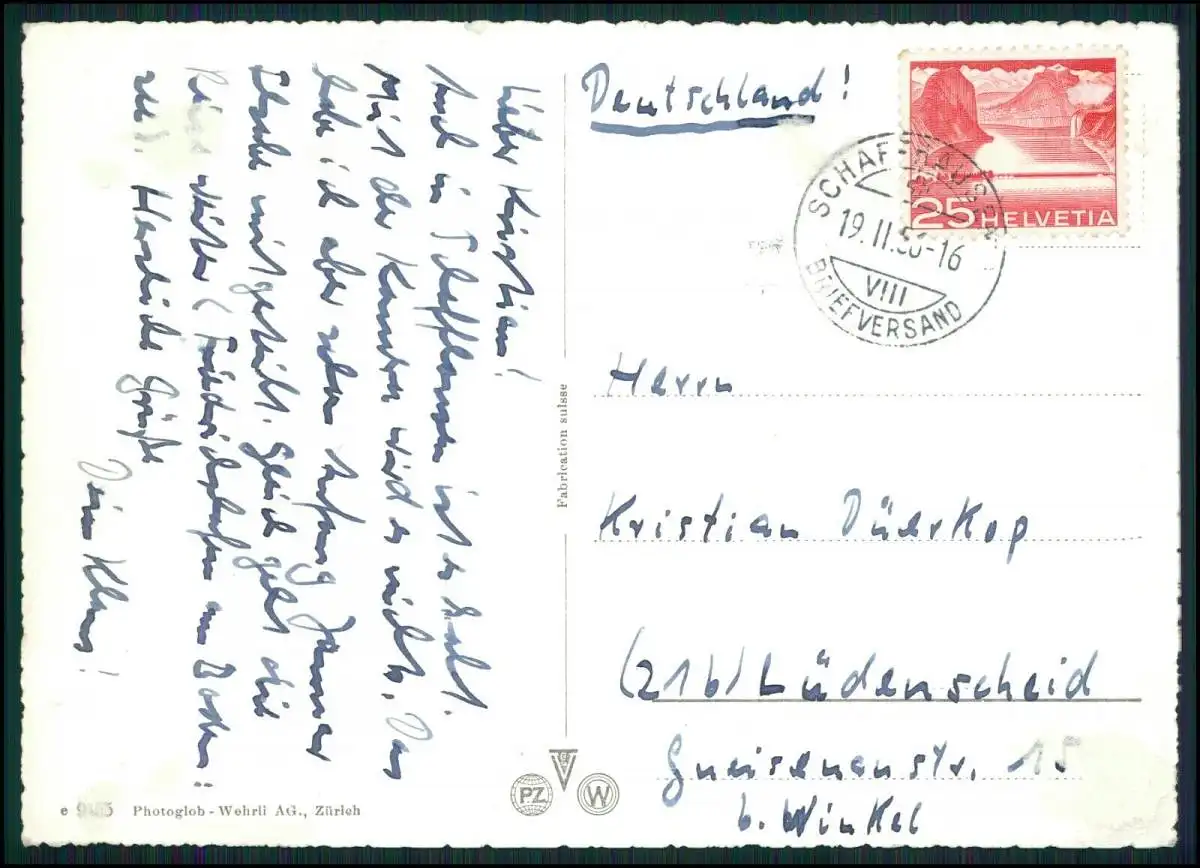 Lieber Kristian!
Auch in Schaffhausen ist es kalt.
Mit der Kamera wird es nichts. Das
habe ich aber schon Anfang Jänner
mitgeteilt. Gleich geht die
Reise weiter (Friedrichshafen am Boden-
see). Herzliche Grüße
Dein Klaus!
Deutschland!
25 HELVETIA
SCHAFFHAUSEN
19.II.53-16
VIII
BRIEFVERSAND
Herrn
Kristian Düerkop
(21b) Lüdenscheid
Gneisenaustr. 15
b. Winkel
Fabrication suisse
PZ
W
e Photoglob-Wehrli AG., Zürich